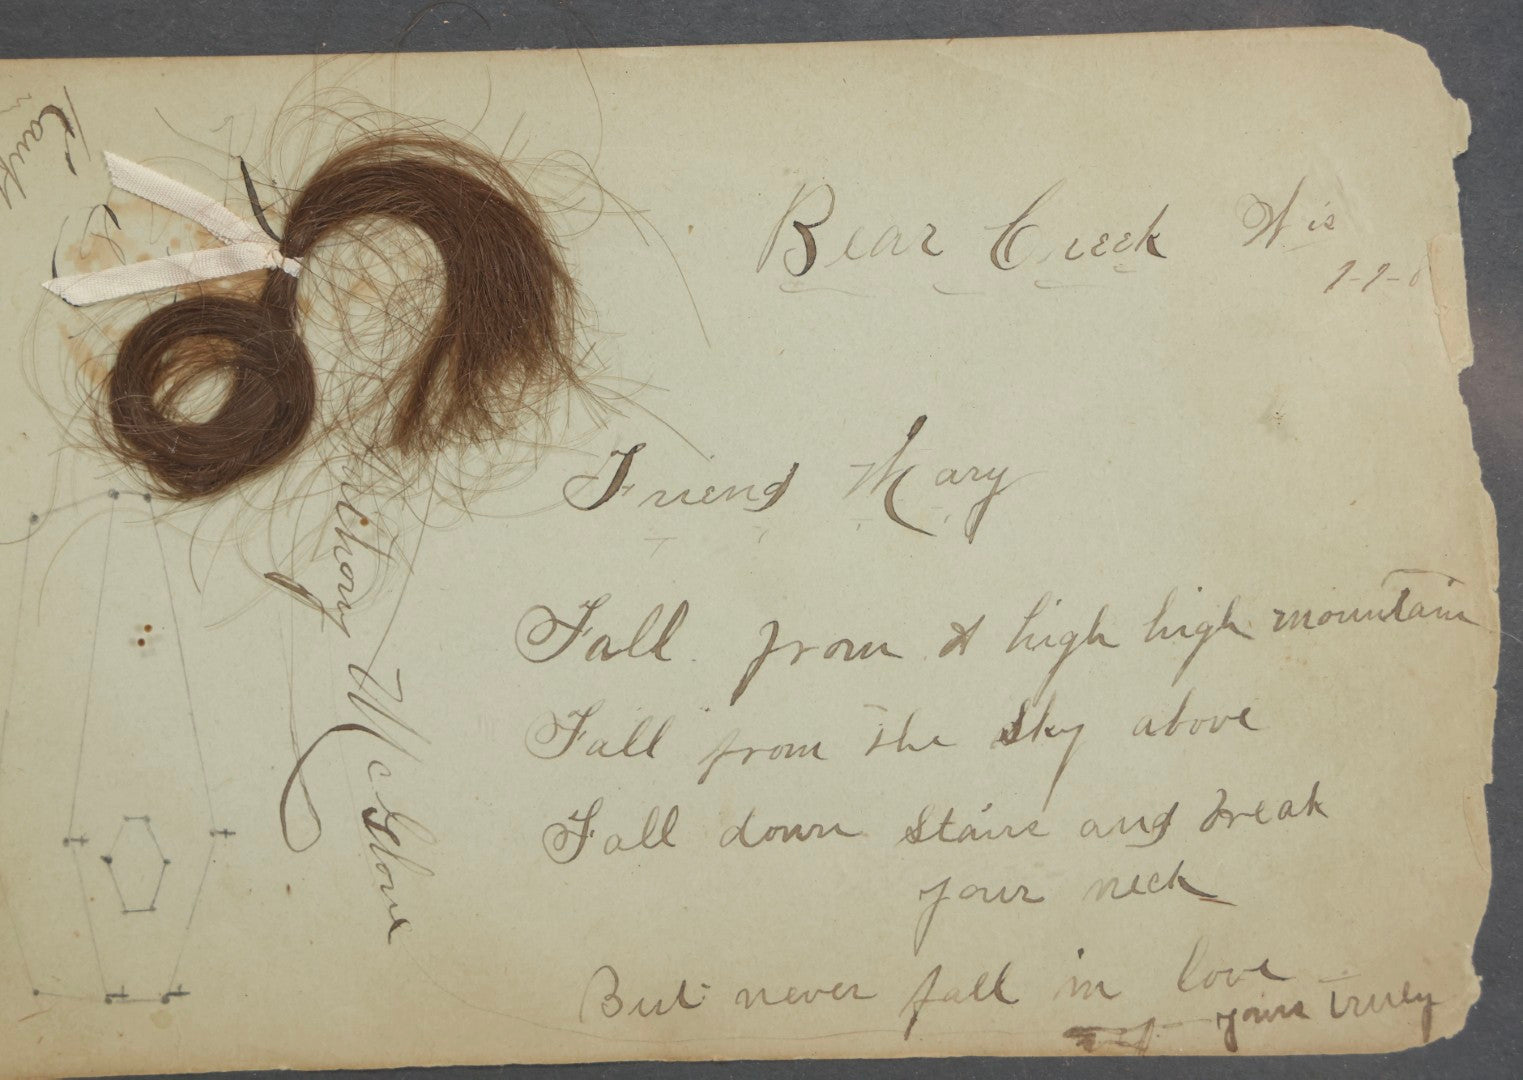 Bear Creek Wis
Friend Mary
Fall from a high high mountain
Fall from the sky above
Fall down stairs and break
your neck
But never fall in love
yours truly
Anthony McGlone